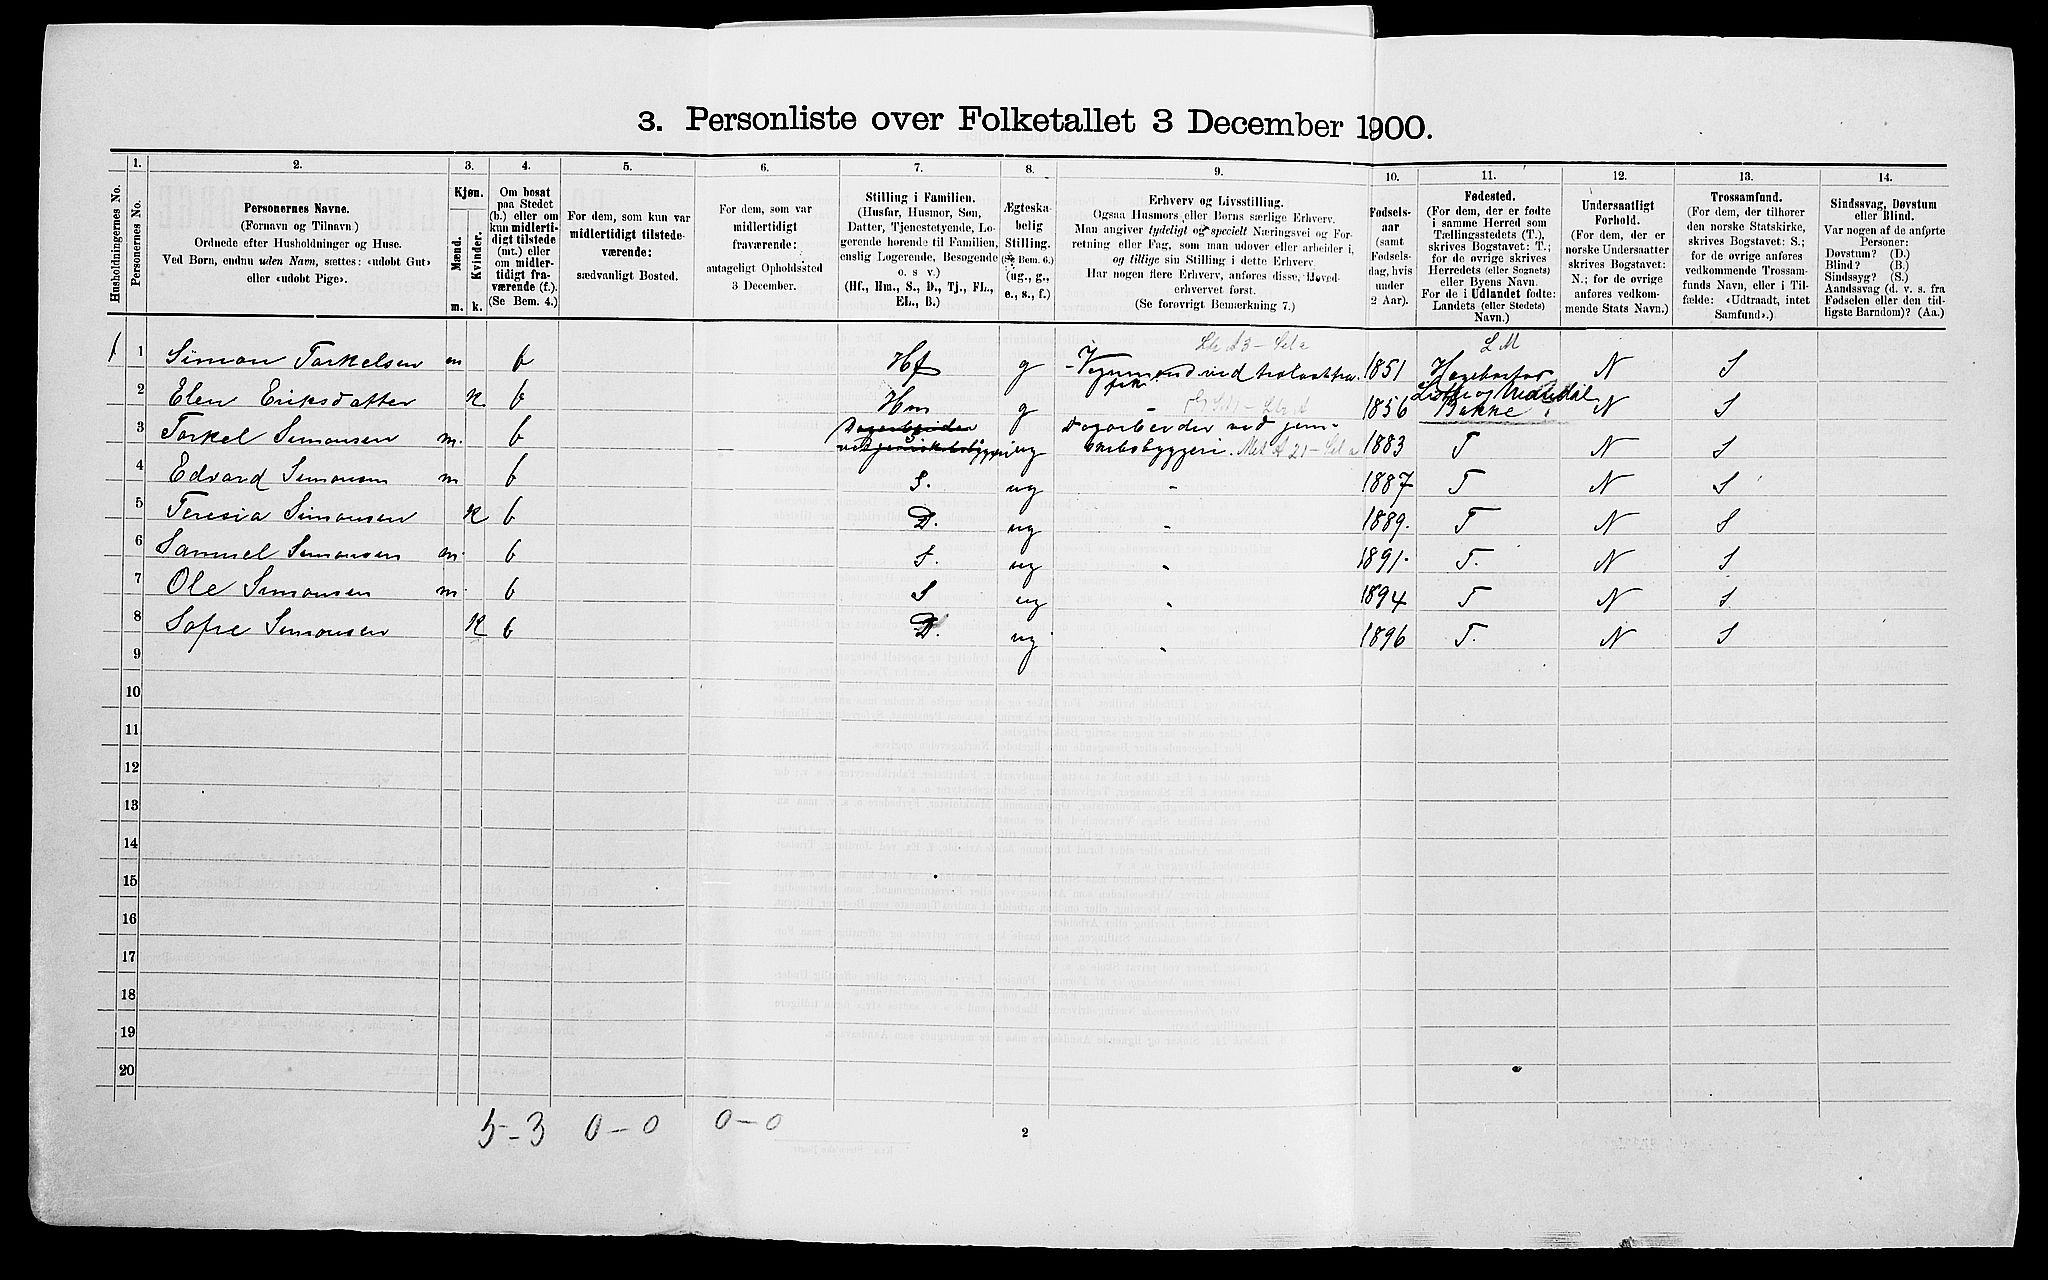 3. Personliste over Folketallet 3 December 1900.
Husholdningernes No.
1. Personernes No.
2. Personernes Navne. (Fornavn og Tilnavn) Ordnede efter Husholdninger og Huse. Ved Børn, endnu uden Navn, sættes: «udøbt Gut» eller «udøbt Pige».
3. Kjøn. Mænd. Kvinder. m. k.
4. Om bosat paa Stedet (b.) eller om kun midlertidigt tilstede (mt.) eller om midlertidigt fraværende (f.). (Se Bem. 4.)
5. For dem, som kun var midlertidigt tilstedeværende: sædvanligt Bosted.
6. For dem, som var midlertidigt fraværende: antageligt Opholdssted 3 December.
7. Stilling i Familien. (Husfar, Husmor, Søn, Datter, Tjenestetyende, Logerende hørende til Familien, enslig Logerende, Besøgende o. s. v.) (Hf., Hm., S., D., Tj., FL., EL., B.)
8. Ægteskabelig Stilling. (Se Bem. 6.) (ug., g., e., s., f.)
9. Erhverv og Livsstilling. Ogsaa Husmors eller Børns særlige Erhverv. Man angiver tydeligt og specielt Næringsvei og Forretning eller Fag, som man udøver eller arbeider i, og tillige sin Stilling i dette Erhverv. Har nogen flere Erhverv, anføres disse, Hovederhvervet først. (Se forøvrigt Bemærkning 7.)
10. Fødselsaar (samt Fødselsdag, hvis under 2 Aar).
11. Fødested. (For dem, der er fødte i samme Herred som Tællingsstedets (T.), skrives Bogstavet: T.; for de øvrige skrives Herredets (eller Sognets) eller Byens Navn. For de i Udlandet fødte: Landets (eller Stedets) Navn.)
12. Undersaatligt Forhold. (For dem, der er norske Undersaatter skrives Bogstavet: N.; for de øvrige anføres vedkommende Stats Navn.)
13. Trossamfund. (For dem, der tilhører den norske Statskirke, skrives Bogstavet: S.; for de øvrige anføres vedkommende Trossamfunds Navn, eller i Tilfælde: «Udtraadt, intet Samfund».)
14. Sindssvag, Døvstum eller Blind. Var nogen af de anførte Personer: Døvstum? (D.) Blind? (B.) Sindssyg? (S.) Aandssvag (d. v. s. fra Fødselen eller den tidligste Barndom)? (Aa.)
1 1 Simon Torkelsen m b Hf g 1851 L M N S
2 Elen Eriksdatter K b Hm g - 1856 Bakke N S
3 Torkel Simonsen m. b ug Dagarbeider ved jernbanebyggeri. 1883 T N S
4 Edvard Simonsen m b S. ug " 1887 T N S
5 Teresia Simonsen K b D. ug " 1889. T N S
6 Samuel Simonsen m. b S. ug " 1891. T. N S
7 Ole Simonsen m. b S ug " 1894 T N S
8 Sofie Simonsen K b D. ug " 1896 T. N S
9
10
11
12
13
14
15
16
17
18
19
20
5-3 0-0 0-0
2